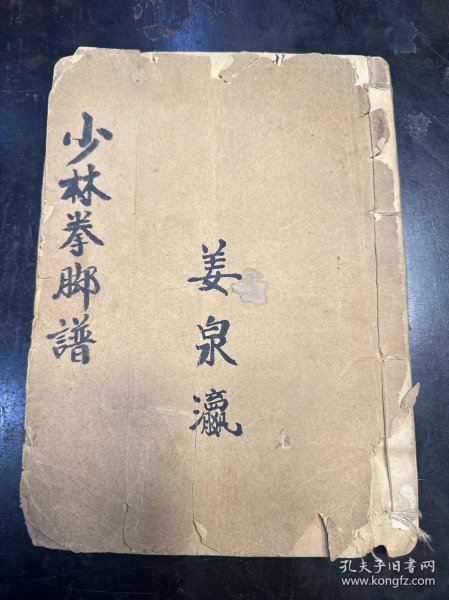 少林拳脚譜
姜泉瀛
孔夫子旧书网
www.kongfz.com